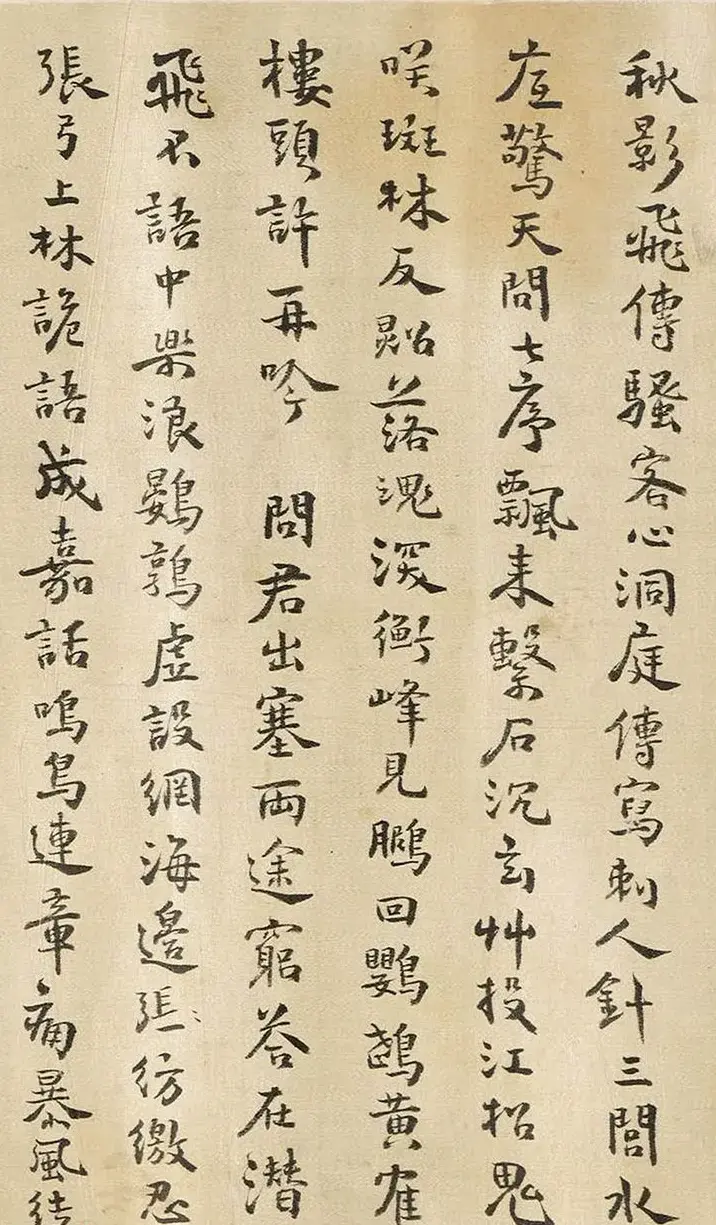 秋影飛傳騷客心洞庭傳寫刺人針三閭水
左驚天問七序飄來繫石沉玄艸投江招鬼
咲斑林反貽落魂深衡峰見鵬回鸚鵡黃雀
樓頭許再吟 問君出塞兩途窮答在潛
飛不語中樂浪鷃鶉虛設網海邊張彷繳忍
張弓上林詭語成嘉話鳴鳥連章痛暴風